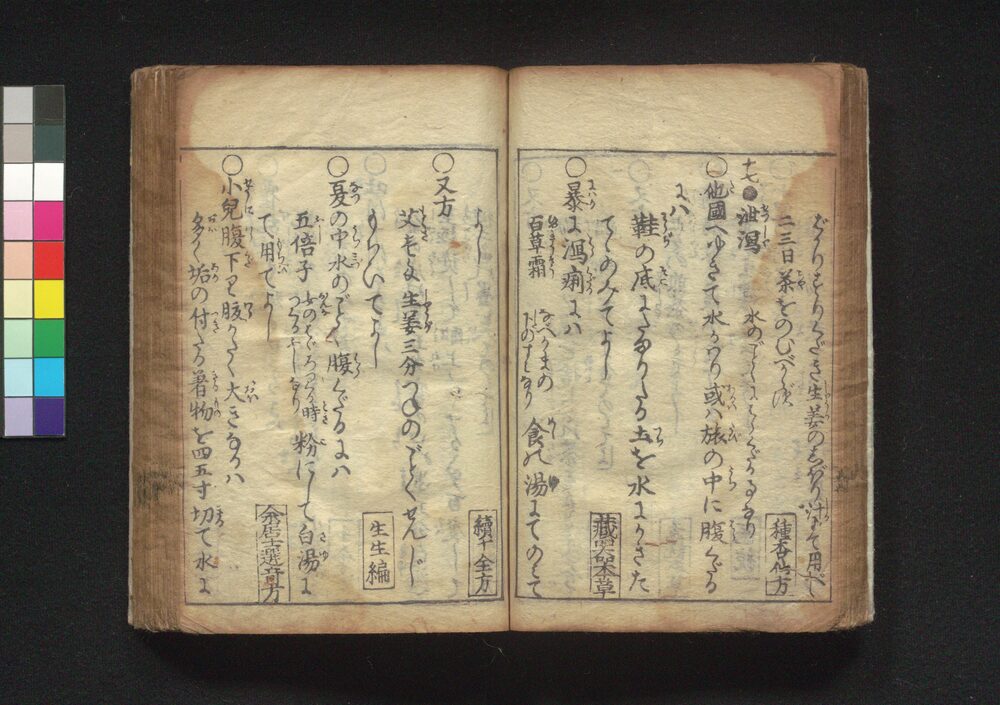 二三日茶をのむべからず
種杏仙方
十七●泄瀉 水のごとくにはらくだるなり
○他國へゆきて水かはり或ハ旅の中に腹くだる
にハ
鞋の底にたまりたる土を水にかきたて
てのみてよし
藏器本草
○暴に瀉痢にハ
百草霜 なべかまの下のすみなり 食の湯にてのみて
よし
續千金方
○又方
艾もよし生姜三分つねのごとくせんじ
もちいてよし
生生編
○夏の中水のごとく腹くだるにハ
五倍子 粉にして白湯に
て用てよし
余居士選奇方
○小兒腹下り腹かたく大きなるハ
多く垢の付たる着物を四五寸切て水に